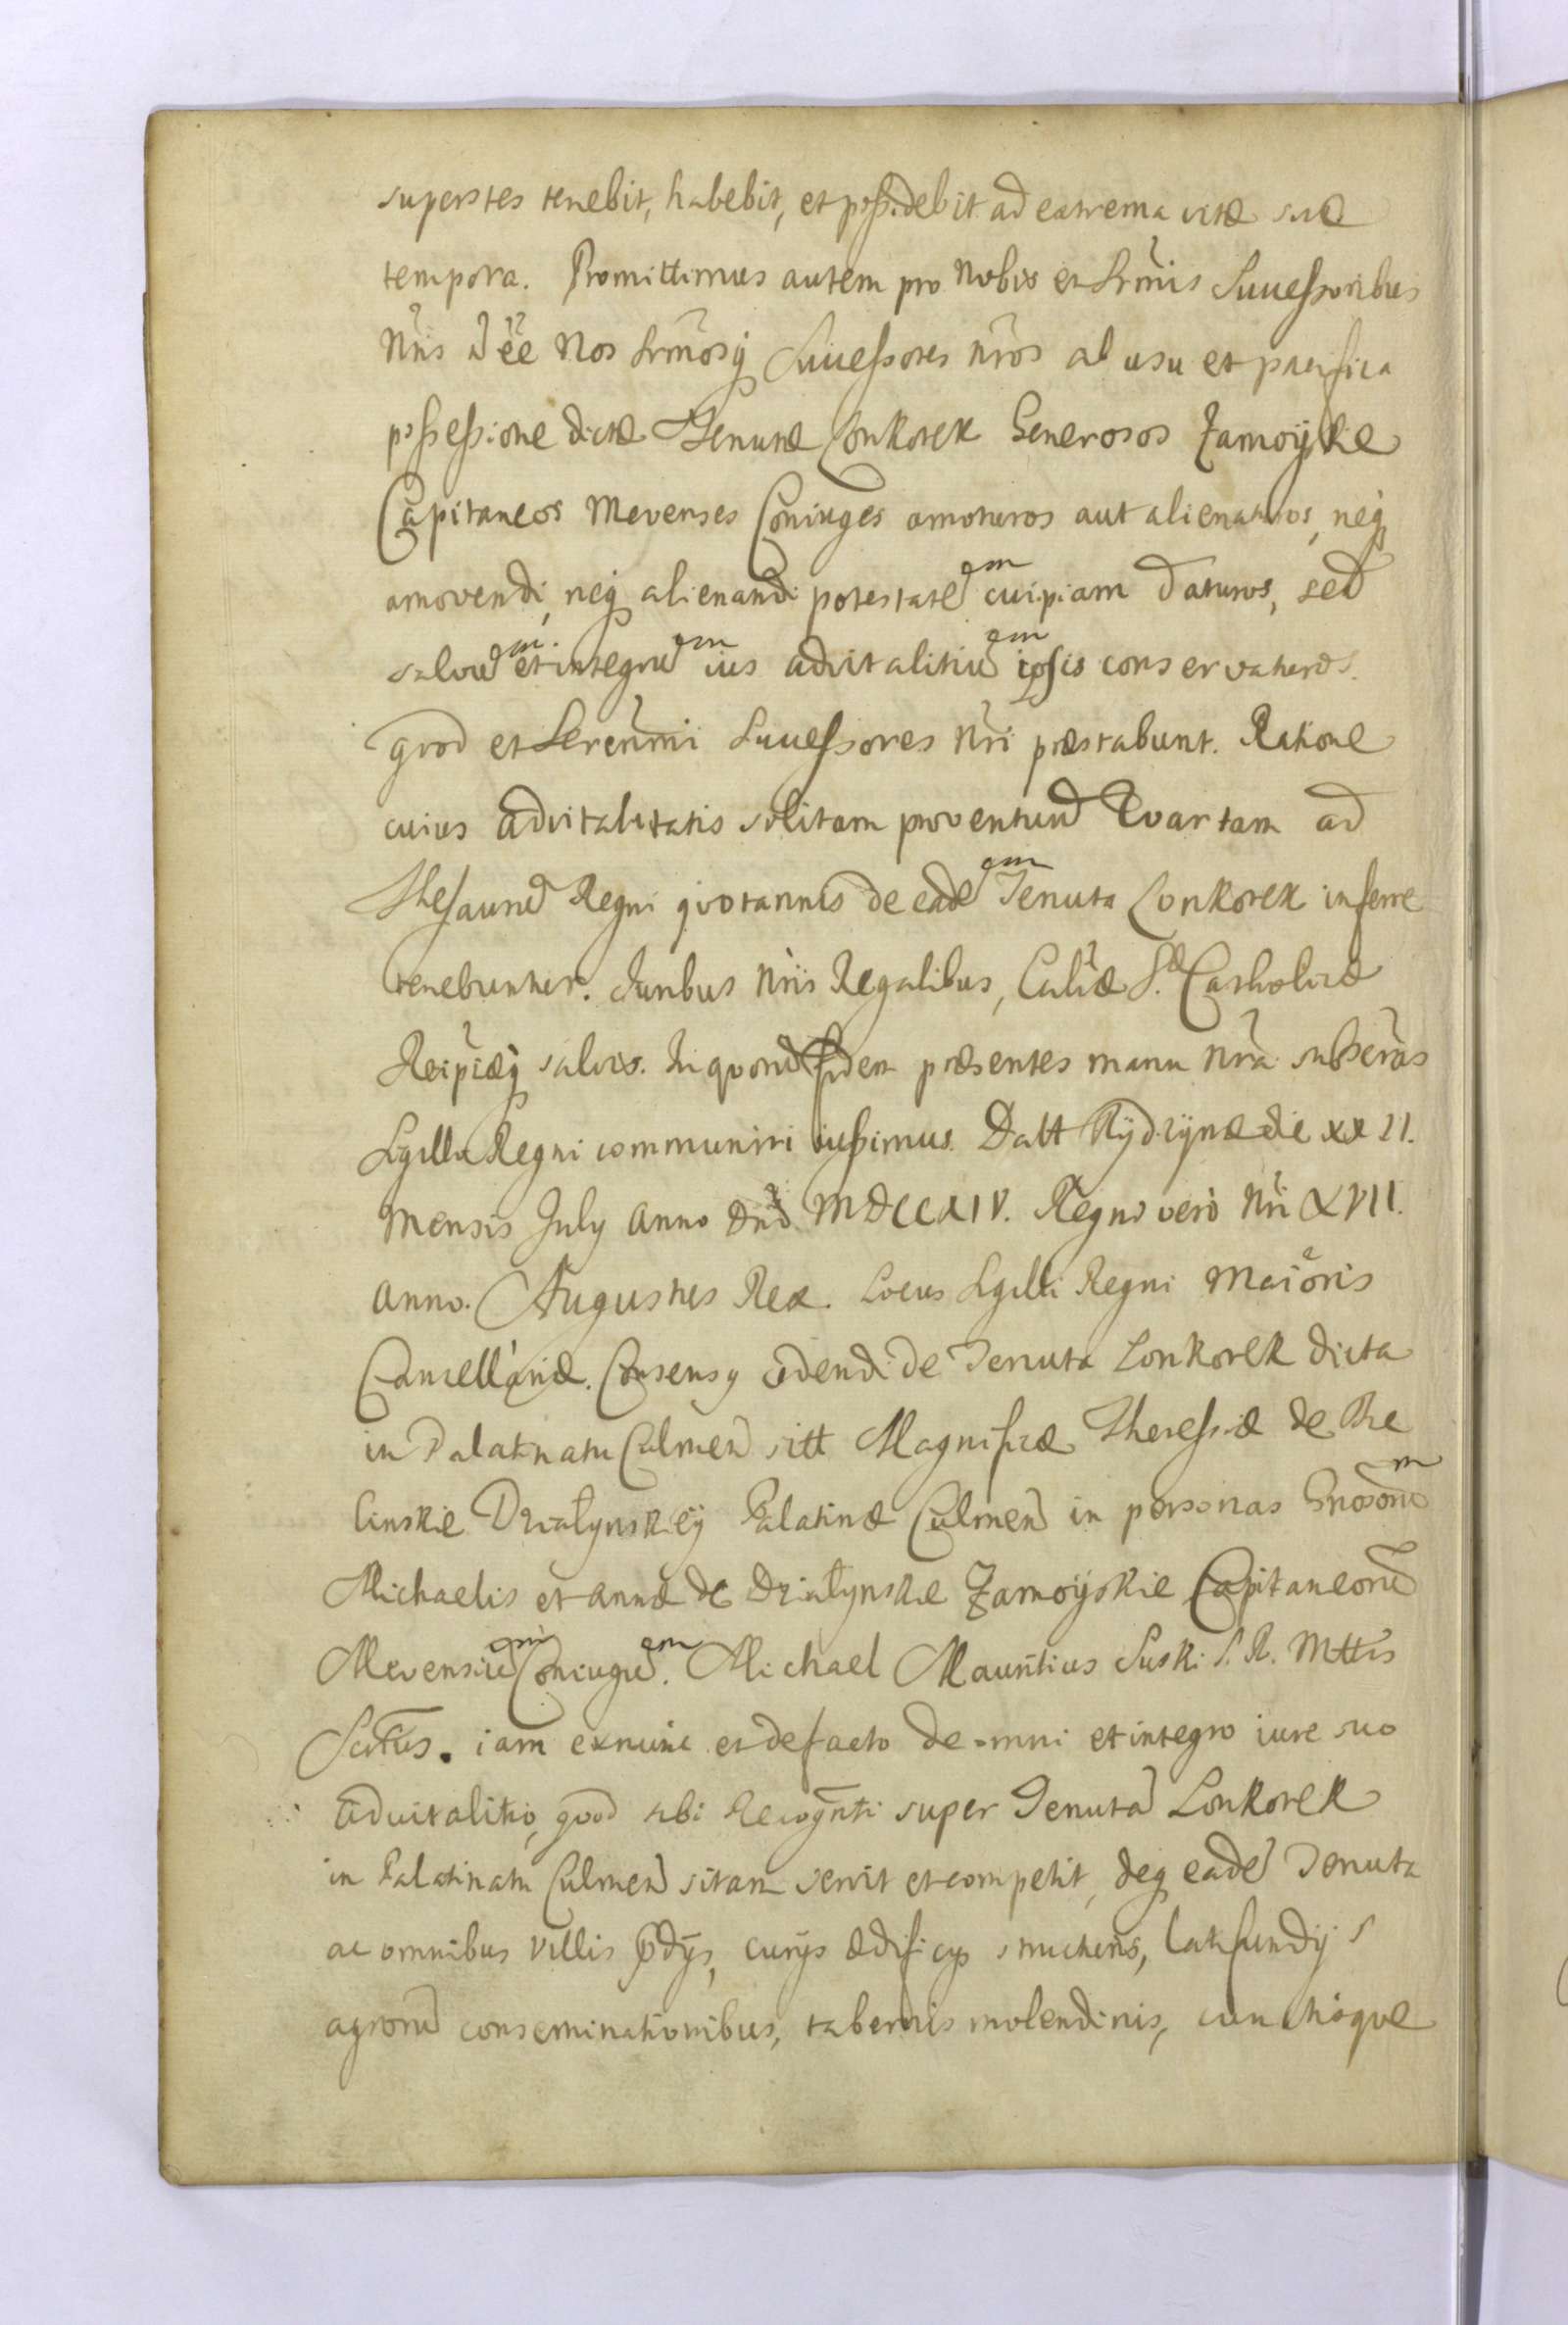 superstes tenebit, habebit, et possidebit ad extrema vitæ suæ
tempora. Promittimus autem pro Nobis et Srm̃is Successoribus
Nr̃is ẽe Nos Srm̃osq Successores nr̃os ab usu et pacifica
possessione dictæ Tenutæ Lonkorek Generosos Zamoÿskie
Capitaneos Mevenses Coniuges amoturos aut alienaturos, neq
amovendi, neq alienandi potestatem cuipiam daturos, sed
salvum et integrum ius advitalitium ipsis conservaturos.
qvod et Seren̄mi Successores Nr̃i præstabunt. Ratione
cuius advitalitatis solitam proventuum Qvartam ad
Thesaurum Regni qvotannis de eadem Tenuta Lonkorek inferre
tenebuntur. Iuribus Nr̃is Regalibus, S. Catholicæ
Reip̃cæq salvis. In qvorum fidem præsentes manu Nr̃a subscr̃as
Sgillo Regni communiri iussimus. Datt Rÿdzÿnæ die XXII.
Mensis July Anno Dn̄i MDCCXIV. Regni verò Nr̃i XVII.
Anno. Augustus Rex. Locus Sgilli Regni Maioris
Cancellariæ. Consensq cedendi de Tenuta Lonkorek dicta
in Palatinatu Culmen sitt Magnificæ Theressiæ de Bie
linskie Działynskieÿ Palatinæ Culmen in personas Gnosorum
Michaelis et Annæ de Działynskie Zamoÿskie Capitaneorum
Mevensium Coniugum. Michael Mauritius Suski S. R. Mttis
Scrtus. iam exnunc et defacto de omni et integro iure suo
advitalitio, qvod sibi Recognt̄i super Tenutam Lonkorek
in Palatinatu Culmen sitam servit et competit, deq eadem Tenuta
ac omnibus villis p̃dÿs, curÿs ædificÿs structuris, latifundÿs
agrorum conseminationibus, tabernis molendinis, cunctisqve